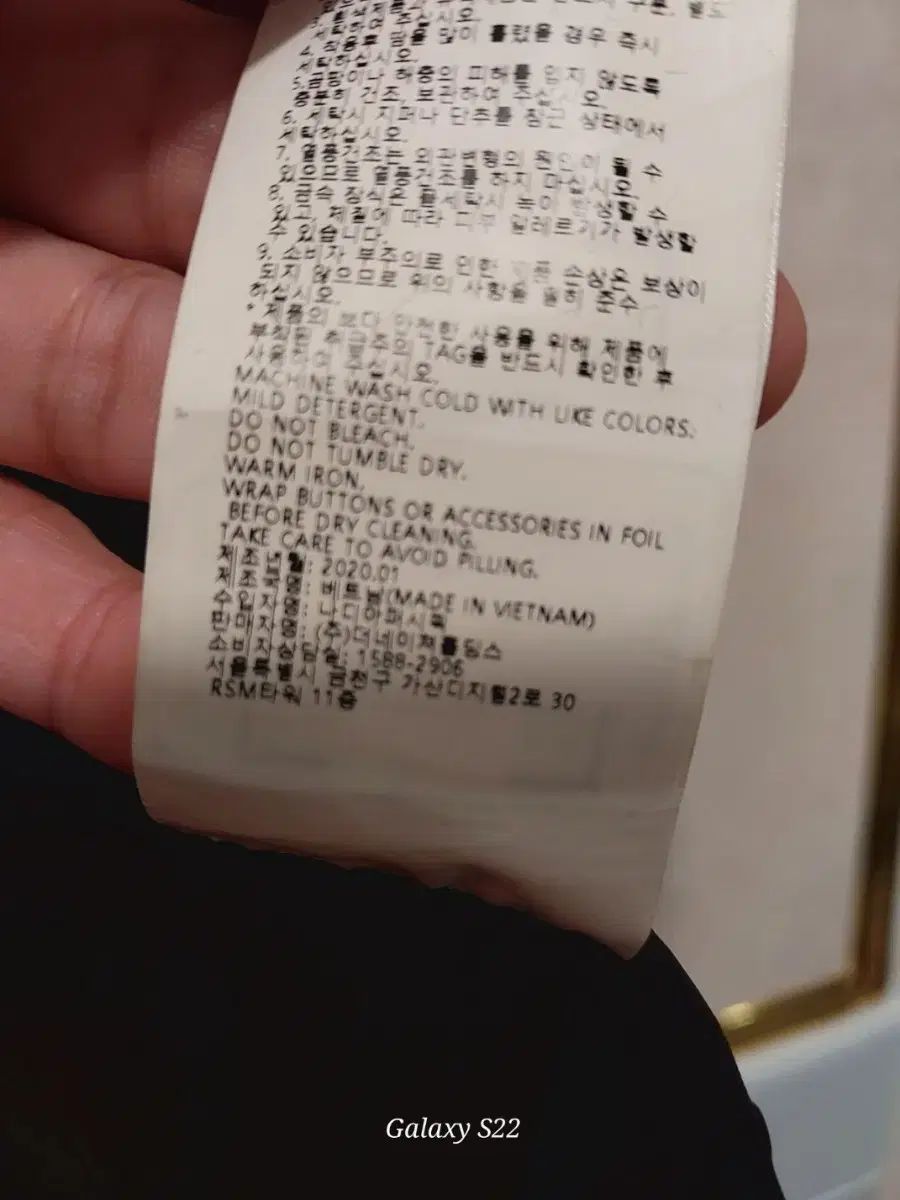 주십시오.
4. 착용 후 땀을 많이 흘렸을 경우 즉시
세탁하십시오.
5. 곰팡이나 해충의 피해를 입지 않도록
충분히 건조, 보관하여 주십시오.
6. 세탁시 지퍼나 단추를 잠근 상태에서
세탁하십시오.
7. 열풍건조는 외관변형의 원인이 될 수
있으므로 열풍건조를 하지 마십시오.
8. 금속 장식은 물세탁시 녹이 발생할 수
있고, 체질에 따라 피부 알레르기가 발생할
수 있습니다.
9. 소비자 부주의로 인한 제품 손상은 보상이
되지 않으므로 위의 사항을 필히 준수
하십시오.
*제품의 보다 안전한 사용을 위해 제품에
부착된 취급주의 TAG을 반드시 확인한 후
사용하여 주십시오.
MACHINE WASH COLD WITH LIKE COLORS.
MILD DETERGENT.
DO NOT BLEACH.
DO NOT TUMBLE DRY.
WARM IRON.
WRAP BUTTONS OR ACCESSORIES IN FOIL
BEFORE DRY CLEANING.
TAKE CARE TO AVOID PILLING.
제조년월: 2020.01
제조국명: 베트남(MADE IN VIETNAM)
수입자명: 나디아퍼시픽
판매자명: (주)더네이쳐홀딩스
소비자상담실: 1588-2906
서울특별시 금천구 가산디지털2로 30
RSM타워 11층
Galaxy S22